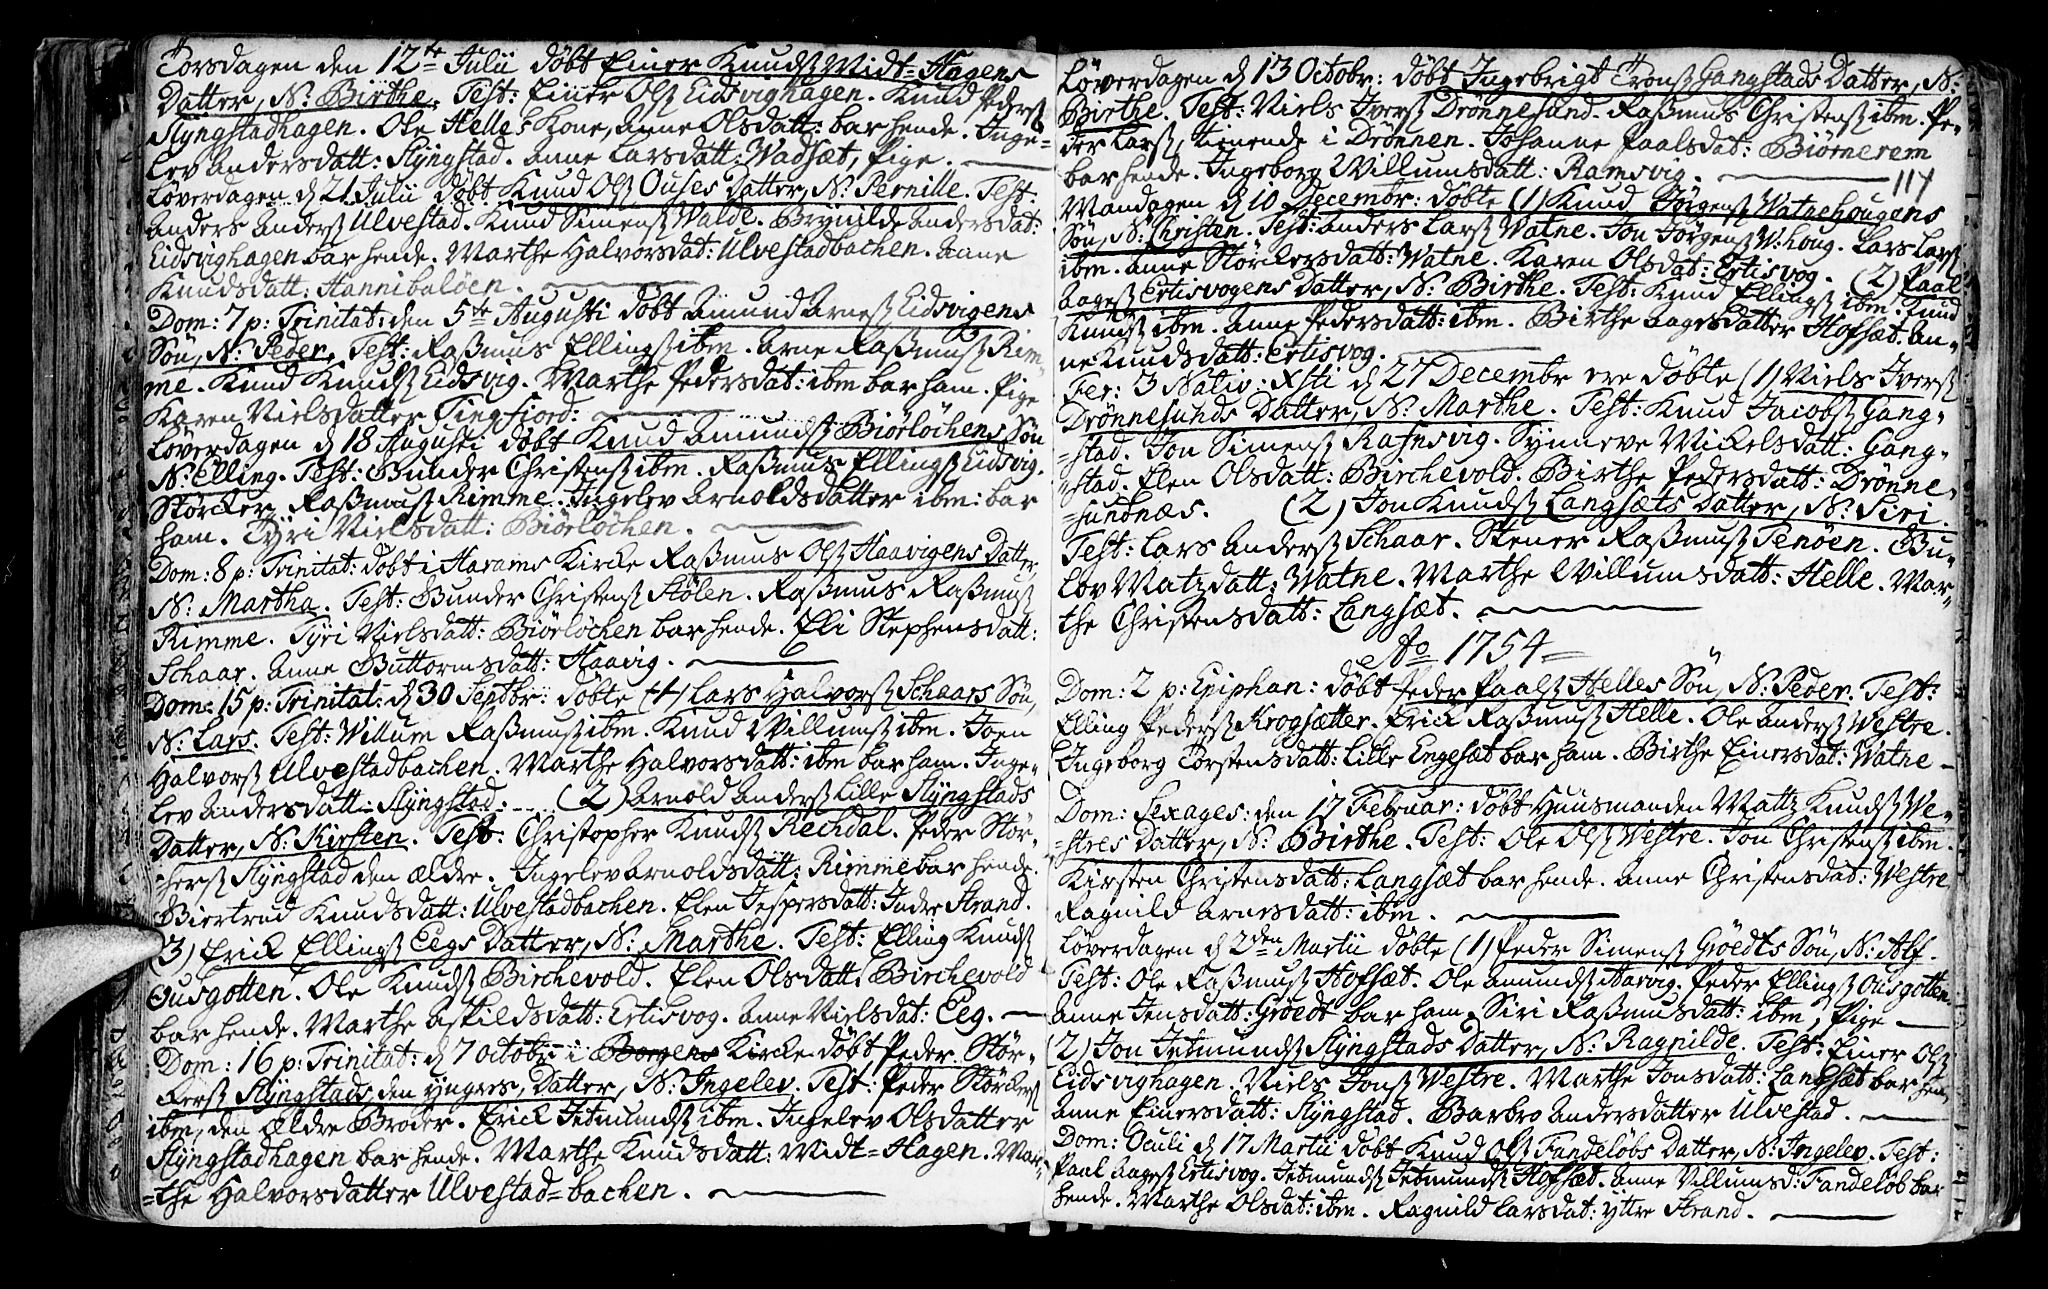 Torsdagen den 12te Julii döbt Einer Knudsß Midt=Hagens
Datter, N: Birthe. Test: Einer Olsß Eidsvighagen. Knud Pedersß
Slyngstadhagen. Ole Helles Kone, Anne Olsdatt: bar hende. Inge-
lev Andersdatt: Slyngstad. Anne Larsdatt: Wadsæt, Pige.
Löverdagen d 21 Julii döbt Knud Olsß Ouses Datter, N: Pernille. Test:
Anders Andersß Ulvestad. Knud Simensß Walde. Brynilde Andersdat:
Eidsvighagen bar hende. Marthe Halvorsdat: Ulvestadbachen. Anne
Knudsdatt: Hannibalöen.
Dom: 7 p: Trinitat: den 5te Augusti döbt Amund Arnesß Eidsvigens
Sön, N: Peder. Test: Rasmus Ellingsß ibm. Arne Rasmusß Rim-
me. Knud Knudsß Eidsvig. Marthe Pedersdat: ibm bar ham. Pige
Karen Nielsdatter Tingfiord:
Löverdagen d 18 Augusti döbt Knud Amundsß Biörlöchens Sön
N: Elling. Test: Gunder Christensß ibm. Rasmus Ellingsß Eidsvig.
Störcker Rasmusß Rimme. Ingelev Arnoldsdatter ibm: bar
ham. Tyri Nielsdatt: Biörlöchen.
Dom: 8 p: Trinitat: döbt i Harams Kircke Rasmus Olsß Haavigens Datter
N: Martha. Test: Gunder Christensß Hölen. Rasmus Rasmusß
Rimme. Tyri Nielsdatt: Biörlöchen bar hende. Eli Stephensdatt:
Schaar. Anne Guttormsdatt: Haavig.
Dom: 15 p: Trinitat: d 30 Septbr: döbte (1) Lars Halvorsß Schaars Sön,
N: Lars. Test: Willum Rasmusß ibm. Knud Willumsß ibm. Joen
Halvorsß Ulvestadbachen. Marthe Halvorsdatt: ibm bar ham. Inge-
lev Andersdatt: Slyngstad. (2) Arnold Andersß Lille Slyngstads
Datter, N: Kirsten. Test: Christopher Knudsß Rechdal. Peder Stör-
kersß Slyngstad den ældre. Ingelev Arnoldsdatt: Rimme bar hende.
Biertrud Knudsdatt: Ulvestadbachen. Elen Jespersdatt: Indre Strand.
(3) Erick Ellingsß Eegs Datter, N: Marthe. Test: Elling Knudsß
Ousgotten. Ole Knudsß Birchevold. Elen Olsdatt: Birchevold
bar hende. Marthe Askildsdatt: Ertisvog. Anne Nielsdat: Eeg.
Dom: 16 p: Trinitat: d 7 Octobr i Borgens Kircke döbt Peder Stör-
kersß Slyngstads den yngres, Datter, N: Ingelev. Test: Peder Störkersß
ibm, den Ældre Broder. Erick Jetmundsß ibm. Ingelev Olsdatter
Slyngstadhagen bar hende. Marthe Knudsdatt: Midt=Hagen. Mar-
=the Halvorsdatter Ulvestad=bachen.
Löverdagen d 13 Octobr: döbt Ingebrigt Tronsß Gangstads Datter, N:
Birthe. Test: Niels Iversß Drönnesund. Rasmus Christensß ibm. Pe-
der Larsß, tienende i Drönnen. Johanne Paalsdat: Biörnerem
bar hende. Ingeborg Willumsdatt: Ramsvig.
117
Mandagen d 10 Decembr: döbte (1) Knud Jörgensß Watnehougens
Sön, N: Christen. Test: Anders Larsß Watne. Jon Jörgensß W:houg. Lars Larsß
ibm. Anne Störckersdatt: Watne. Karen Olsdat: Ertisvog. (2) Paal
Aagesß Ertisvogens Datter, N: Birthe. Test: Knud Ellingsß ibm. Knud
Knudsß ibm. Anne Pedersdatt: ibm. Birthe Aagesdatter Hofsæt. An-
ne Knudsdatt: Ertisvog.
Fer: 3 Nativ: Xsti d 27 Decembr ere döbte (1) Niels Iversß
Drönnesunds Datter, N: Marthe. Test: Knud Jacobsß Gang-
=stad. Jon Simensß Rafnsvig. Synneve Mickelsdatt: Gang-
=stad. Elen Olsdatt: Birchevold. Birthe Pedersdatt: Drönne-
=sundnæs. (2) Jon Knudsß Langsæts Datter, N: Siri.
Test: Lars Andersß Schaar. Stener Rasmusß Tenöen. Gu-
lov Matzdatt: Watne. Marthe Willumsdatt: Helle. Mar-
the Christensdatt: Langsæt.
Ao 1754
Dom: 2 p: Epiphan: döbt Peder Paalsß Helles Sön, N: Peder. Test:
Elling Pedersß Krogsætter. Erick Rasmusß Helle. Ole Andersß Westre.
Ingeborg Torstensdatt: Lille Engesæt bar ham. Birthe Einersdat: Watne
Dom: Sexages: den 17 Februar: döbt Huusmanden Mattz Knudsß We-
=stres Datter, N: Birthe. Test: Ole Olsß Westre. Jon Christensß ibm.
Kirsten Christensdatt: Langsæt bar hende. Anne Christensdat: Westre
Ragnild Arnesdatt: ibm.
Löverdagen d 2den Martii döbte (1) Peder Simensß Gröedts Sön, N: Alf.
Test: Ole Rasmusß Hofsæt. Ole Amundsß Haavig. Peder Ellingsß Ousgotten.
Anne Jensdatt: Gröedt bar ham. Siri Rasmusdatt: ibm, Pige
(2) Jon Jetmundsß Slyngstads Datter, N: Ragnilde. Test: Einer Olsß
Eidsvighagen. Niels Jonsß Westre. Marthe Jonsdatt: Langsæt bar hen,
Anne Einersdatt: Slyngstad. Barbro Andersdatter Ulvestad.
Dom: Oculi d 17 Martii döbt Knud Olsß Fandelöbs Datter, N: Ingelev. Test:
Paal Aagesß Ertisvog. Jetmundsß Jetmundsß Hofsæt. Anne Villumsd: Fandelöb bar
hende. Marthe Olsdat: ibm. Ragnild Larsdat: yttre Strand.